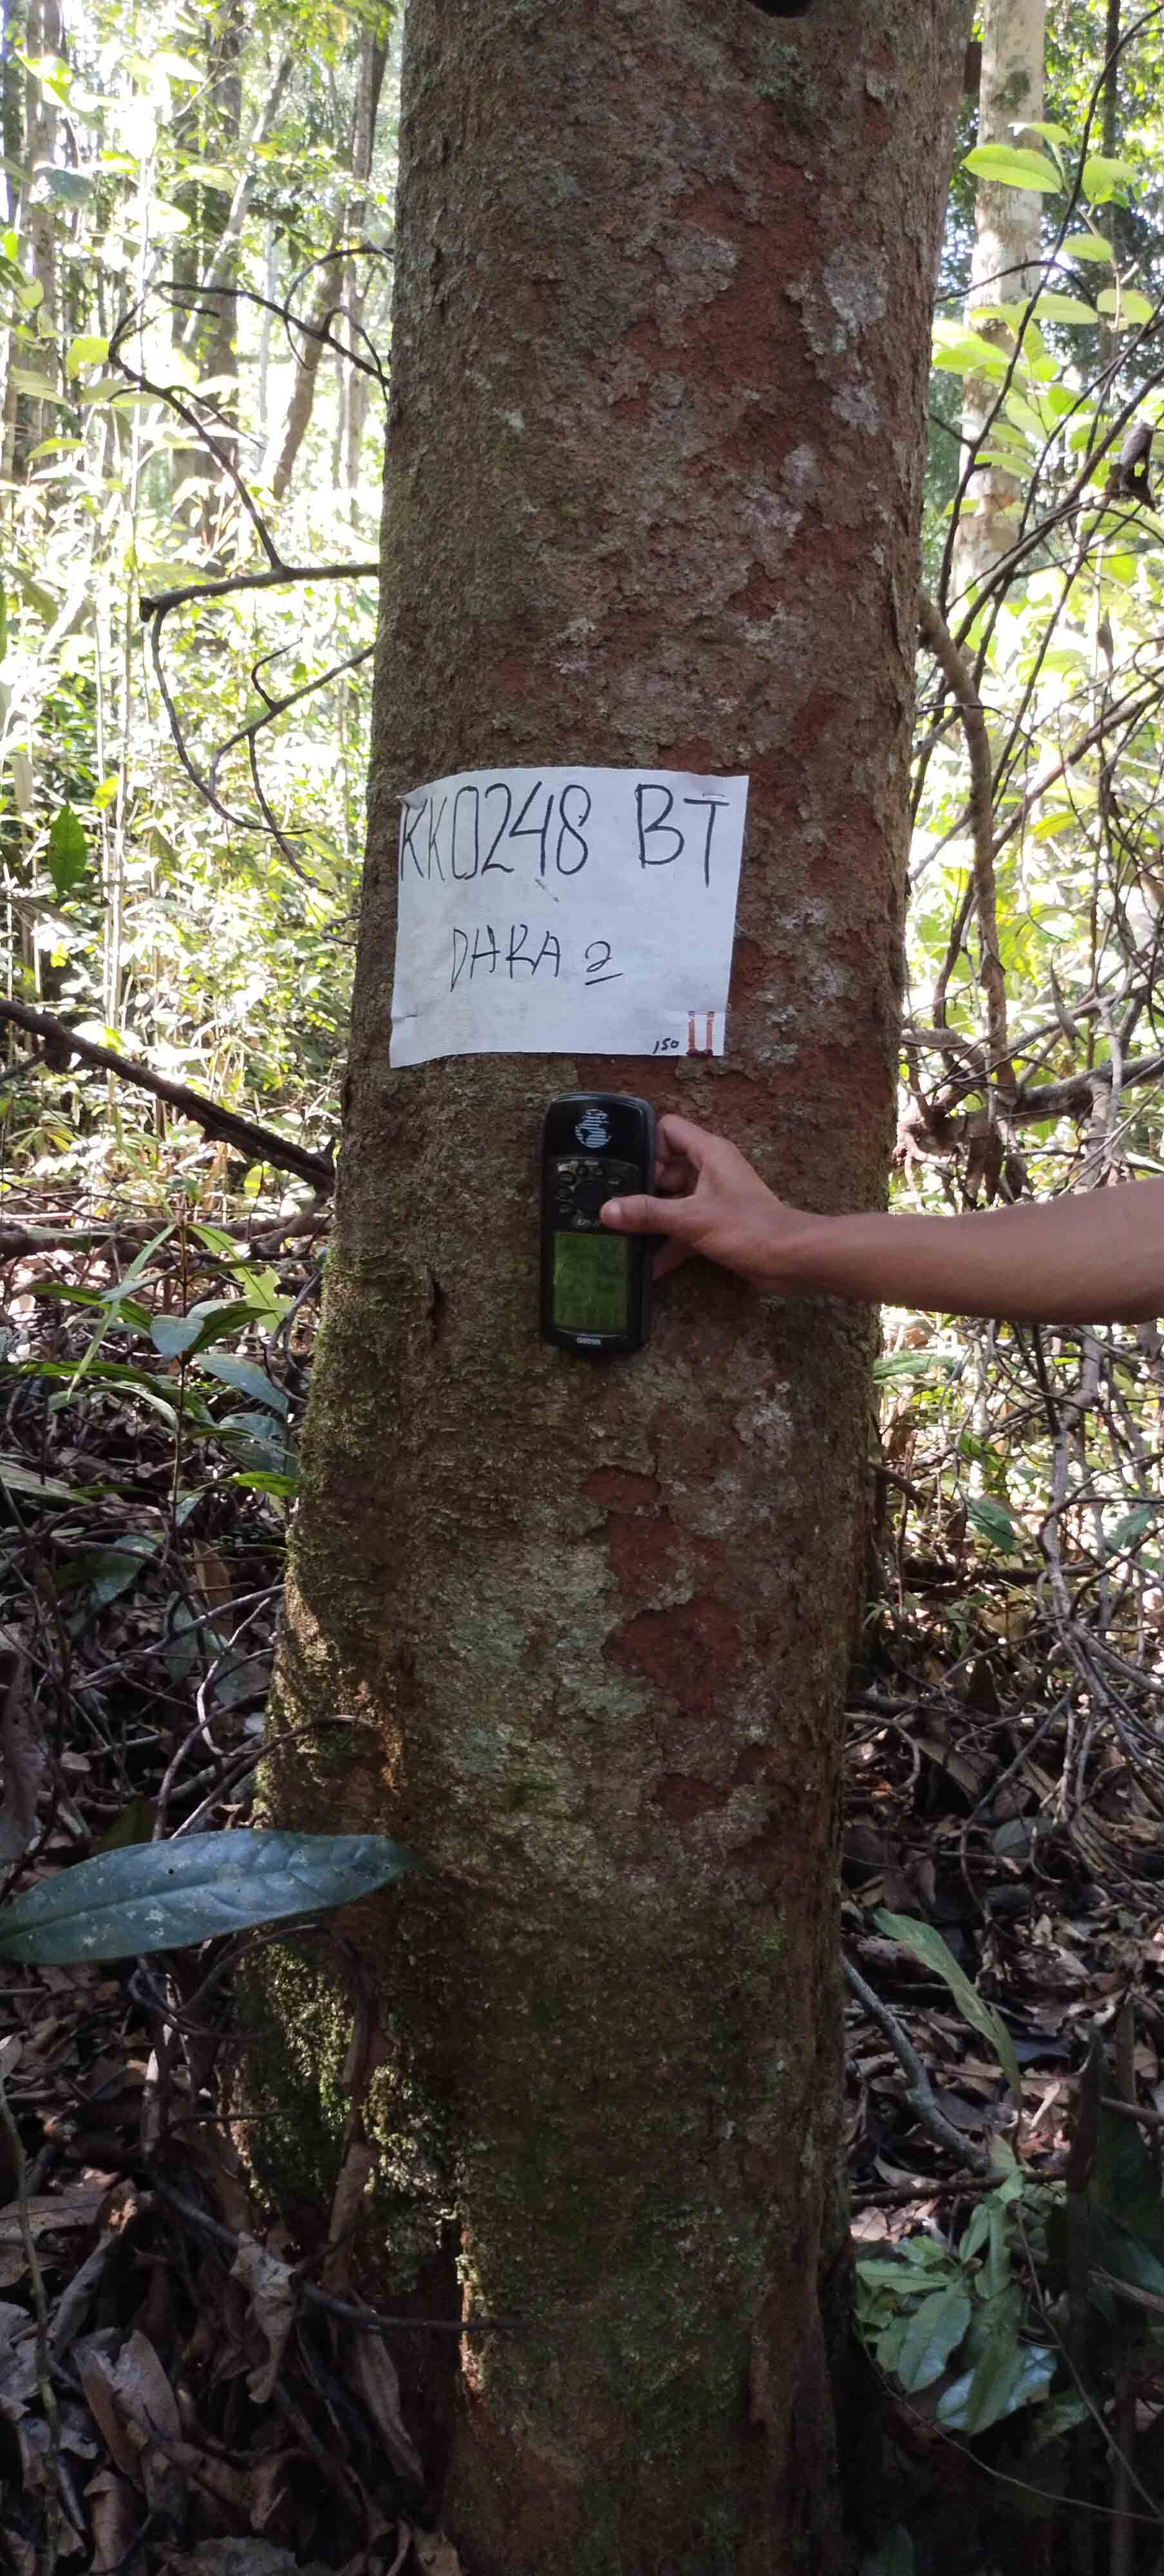 KK0248 BT
DARA 2
150 U
GARMIN